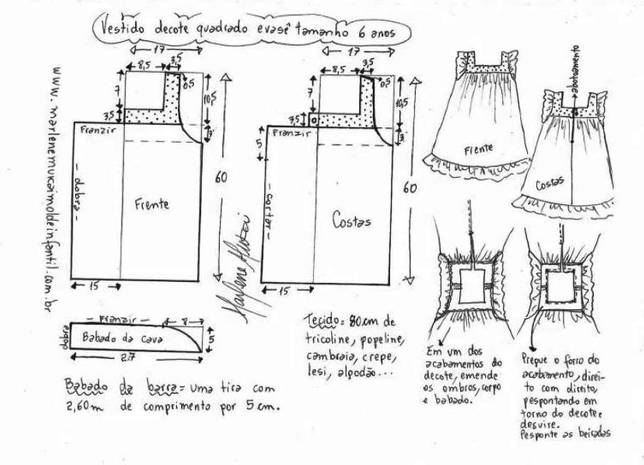 Vestido decote quadrado evasê tamanho 6 anos
17
8,5
3,5
0,5
7
10,5
3,5
3
Franzir
dobra
Frente
60
15
17
8,5
3,5
0,5
7
10,5
3,5
3
Franzir
5
cortar
Costas
60
15
www.marlenemukaimoldeinfantil.com.br
Marlene Mukai
Frente
abotoamento
Costas
Franzir
8
dobra
Babado da Cava
5
27
Babado da barra = uma tira com
2,60m de comprimento por 5cm.
Tecido = 80cm de
tricoline, popeline,
cambraia, crepe,
lesi, algodão...
Em um dos
acabamentos do
decote, emende
os ombros, corpo
e babado.
Pregue o forro do
acabamento, direi-
to com direito,
pespontando em
torno do decote e
desvire.
Pesponte as beiradas